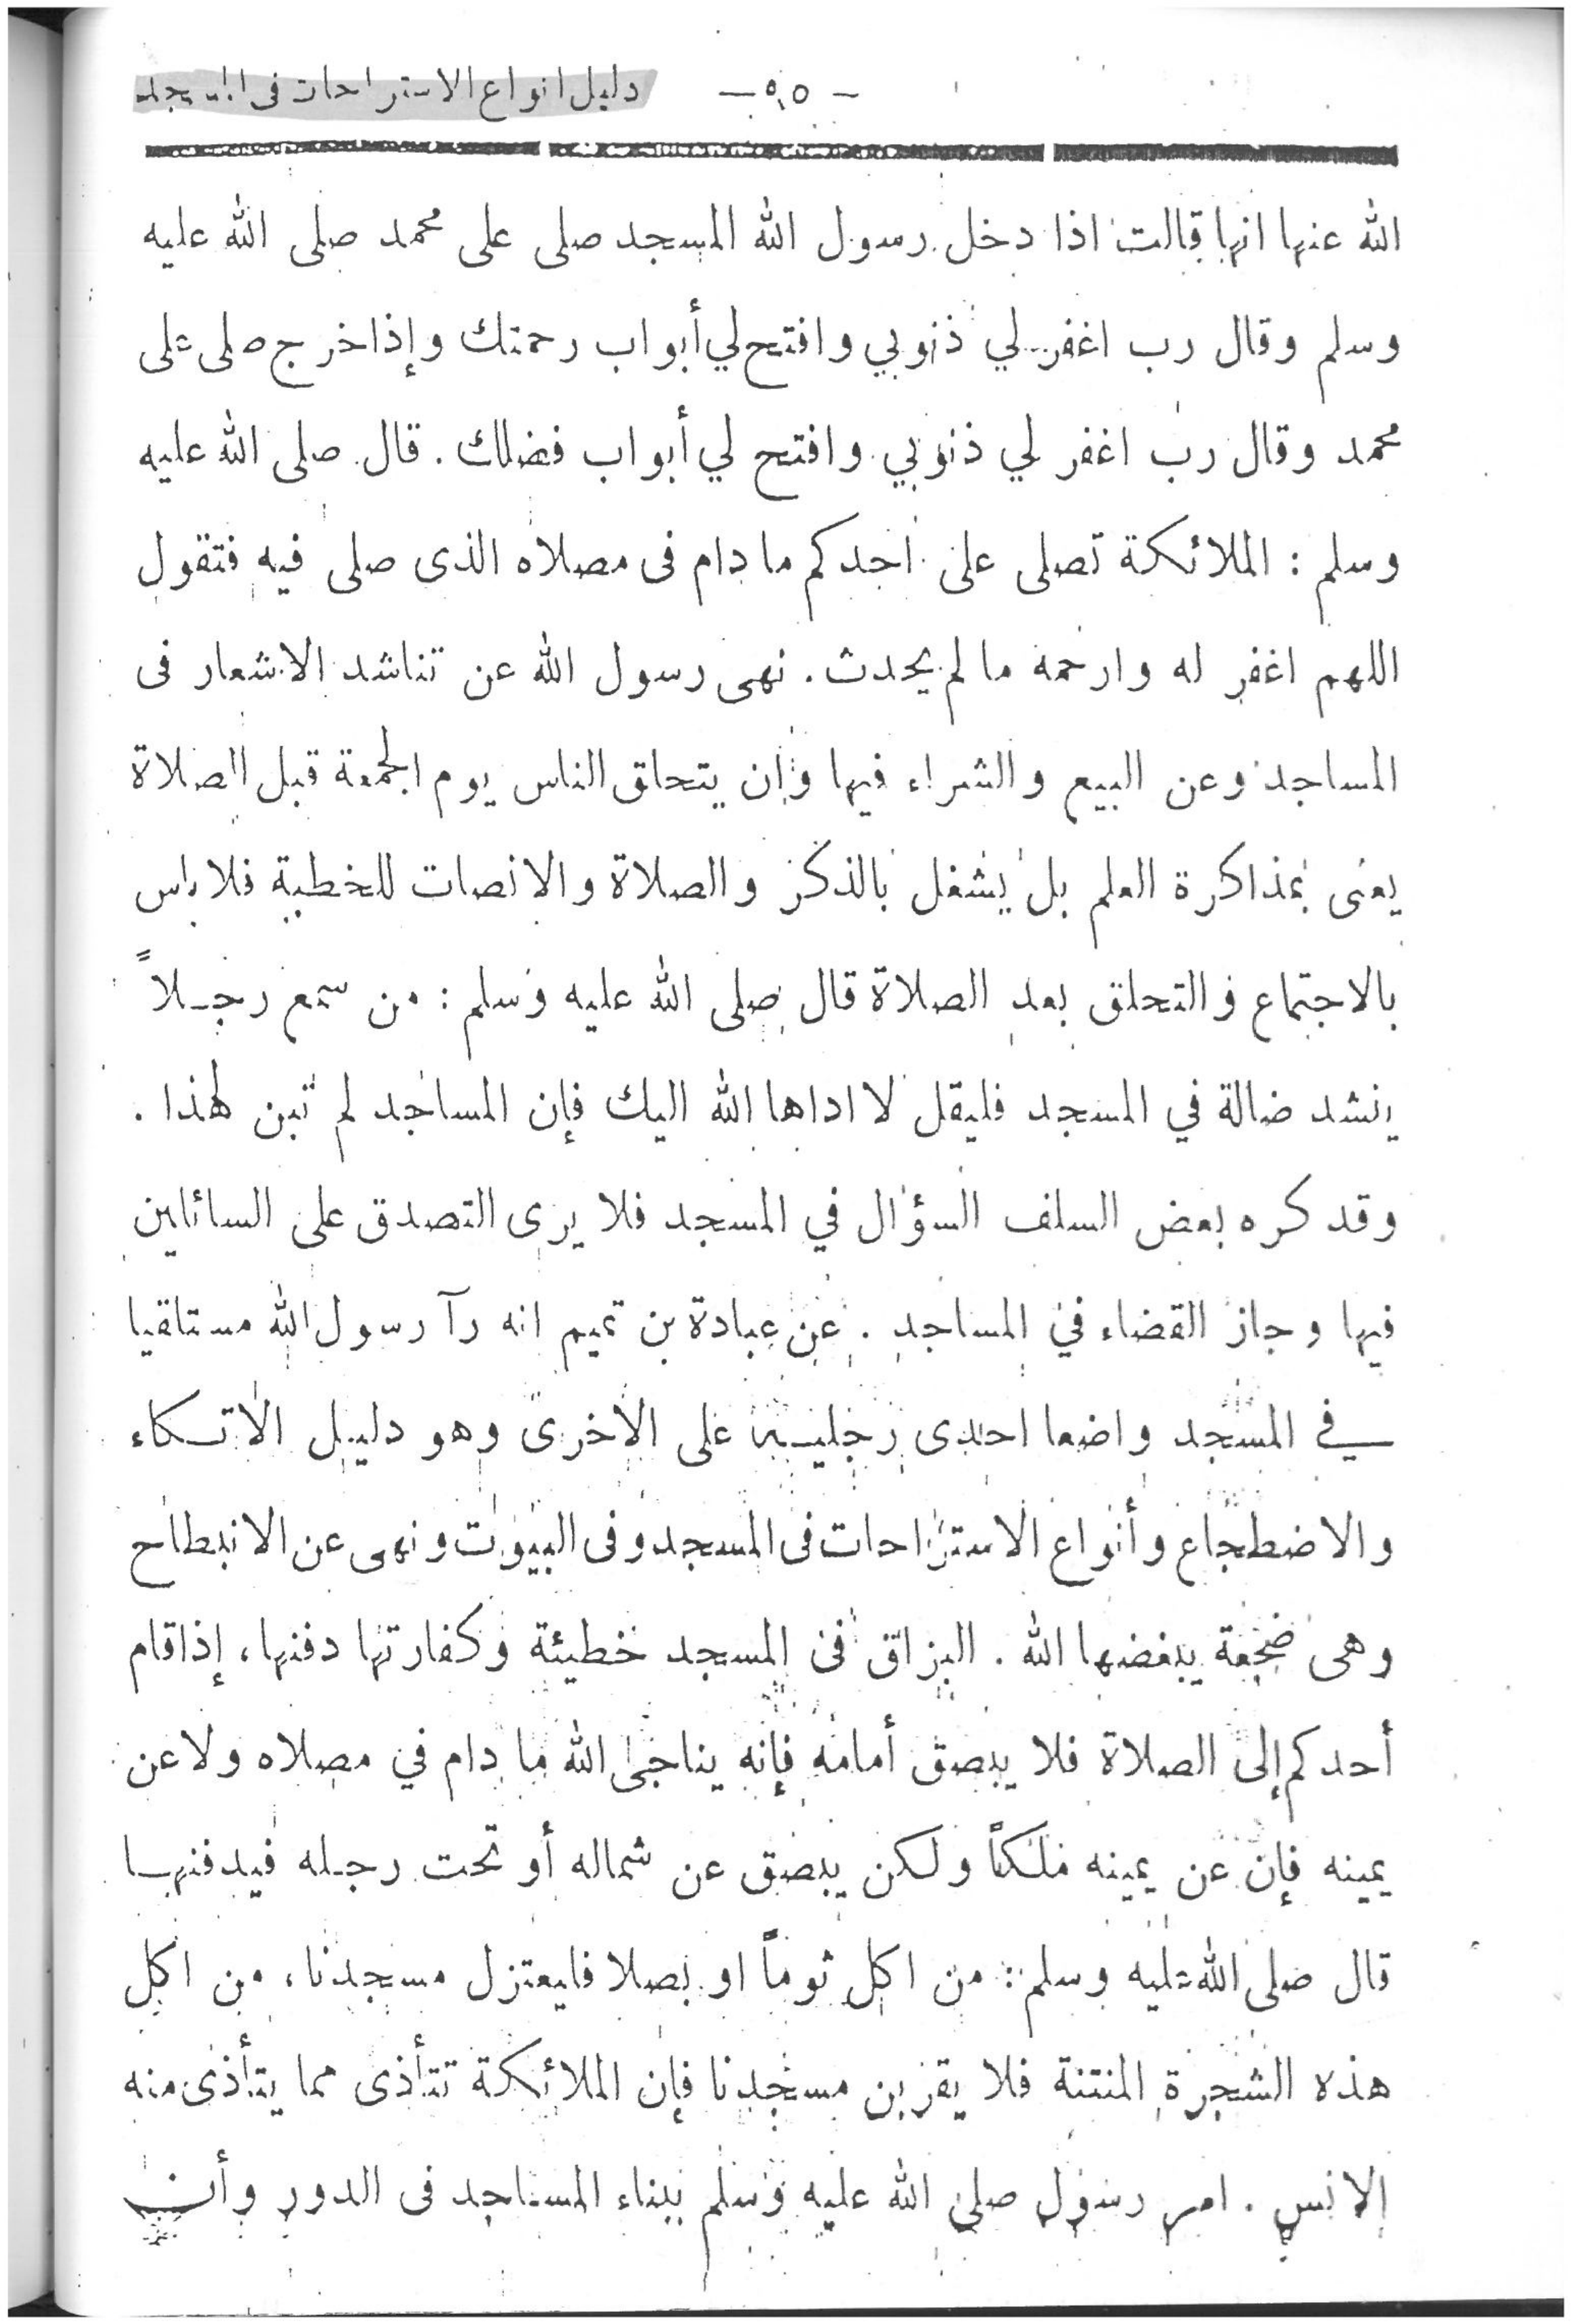 دليل انواع الاستراحات فى المسجد
الله عنها انها قالت اذا دخل رسول الله المسجد صلى على محمد صلى الله عليه
وسلم وقال رب اغفر لي ذنوبي وافتح لي أبواب رحمتك وإذا خرج صلى على
محمد وقال رب اغفر لي ذنوبي وافتح لي أبواب فضلك . قال صلى الله عليه
وسلم : الملائكة تصلى على احدكم ما دام فى مصلاه الذى صلى فيه فتقول
اللهم اغفر له وارحمه ما لم يحدث . نهى رسول الله عن تناشد الاشعار فى
المساجد وعن البيع والشراء فيها وان يتحلق الناس يوم الجمعة قبل الصلاة
يعنى بمذاكرة العلم بل يشغل بالذكر والصلاة والانصات للخطبة فلا باس
بالاجتماع والتحلق بعد الصلاة قال صلى الله عليه وسلم : من سمع رجـلاً
ينشد ضالة في المسجد فليقل لا اداها الله اليك فإن المساجد لم تبن لهذا .
وقد كره بعض السلف السؤال في المسجد فلا يرى التصدق على السائلين
فيها وجاز القضاء في المساجد . عن عبادة بن تميم انه رآ رسول الله مستلقيا
في المسجد واضعا احدى رجليـه على الاخرى وهو دليل الاتـكاء
والاضطجاع وأنواع الاستراحات فى المسجد وفى البيوت ونهى عن الانبطاح
وهى ضجعة يبغضها الله . البزاق فى المسجد خطيئة وكفارتها دفنها ، إذا قام
أحدكم إلى الصلاة فلا يبصق أمامه فإنه يناجى الله ما دام في مصلاه ولا عن
يمينه فإن عن يمينه ملكاً ولكن يبصق عن شماله أو تحت رجله فيدفنهـا
قال صلى الله عليه وسلم : من اكل ثوماً او بصلا فليعتزل مسجدنا ، من اكل
هذه الشجرة المنتنة فلا يقربن مسجدنا فإن الملائكة تتأذى مما يتأذى منه
الانس . امر رسول صلى الله عليه وسلم ببناء المساجد فى الدور وأن